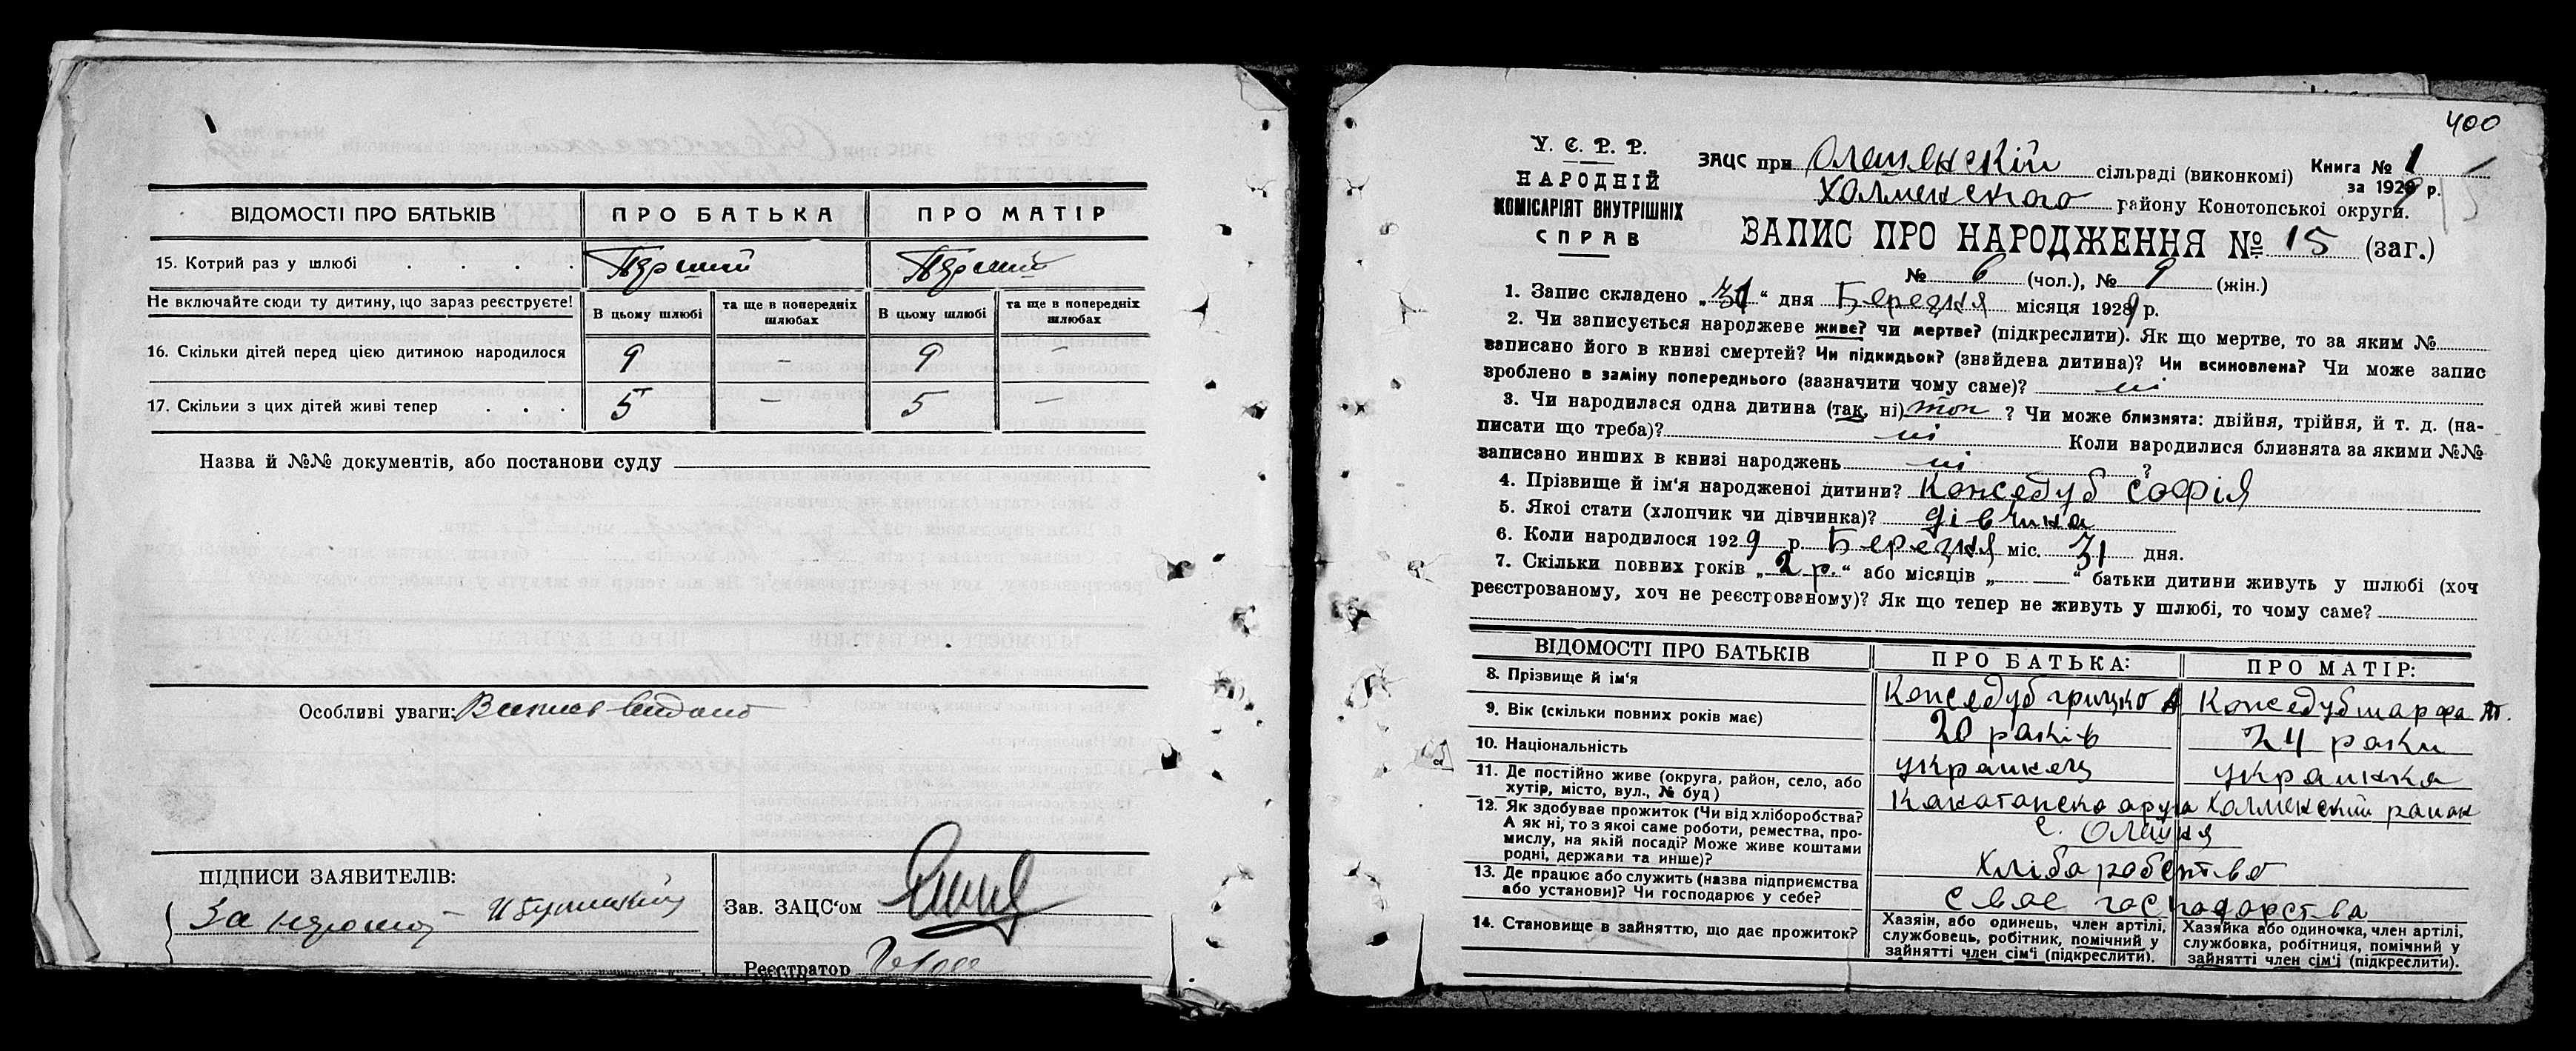 ВІДОМОСТІ ПРО БАТЬКІВ ПРО БАТЬКА ПРО МАТІР
15. Котрий раз у шлюбі . . . . Перший Перший
Не включайте сюди ту дитину, що зараз реєструєте! В цьому шлюбі та ще в попередніх шлюбах В цьому шлюбі та ще в попередніх шлюбах
16. Скільки дітей перед цією дитиною народилося 9 — 9 —
17. Скільки з цих дітей живі тепер . . . 5 — 5 —
Назва й №№ документів, або постанови суду
Особливі уваги:
ПІДПИСИ ЗАЯВИТЕЛІВ:
За
Зав. ЗАЦС'ом
Реєстратор
400
У. С. Р. Р.
НАРОДНІЙ
КОМІСАРІЯТ ВНУТРІШНІХ
СПРАВ
ЗАЦС при сільраді (виконкомі) Книга № 1
за 1929 р.
15
Холменского району Конотопської округи.
ЗАПИС ПРО НАРОДЖЕННЯ № 15 (заг.)
№ 6 (чол.), № 9 (жін.)
1. Запис складено „31“ дня Березня місяця 1929 р.
2. Чи записується народжеве живе? чи мертве? (підкреслити). Як що мертве, то за яким №
записано його в книзі смертей? Чи підкидьок? (знайдена дитина)? Чи всиновлена? Чи може запис
зроблено в заміну попереднього (зазначити чому саме)? ні
3. Чи народилася одна дитина (так, ні) ? Чи може близнята: двійня, трійня, й т. д. (на-
писати що треба)? ні Коли вародилися близнята за якими №№
записано инших в квизі народжень ні ?
4. Прізвище й ім'я народженої дитини? Кожедуб Софія
5. Якої стати (хлопчик чи дівчинка)? дівчина
6. Коли народилося 1929 р. Березня міс. 31 дня.
7. Скільки повних років „2 р.“ або місяців „ — “ батьки дитини живуть у шлюбі (хоч
реєстрованому, хоч не реєстрованому)? Як що тепер не живуть у шлюбі, то чому саме?
ВІДОМОСТІ ПРО БАТЬКІВ ПРО БАТЬКА: ПРО МАТІР:
8. Прізвище й ім'я Кожедуб Грицко Кожедуб Марфа
9. Вік (скільки повних років має) 20 раків 24 раки
10. Національність украинец украинка
11. Де постійно живе (округа, район, село, або
хутір, місто, вул., № буд) Холменский район
12. Як здобуває прожиток (Чи від хліборобства?
А як ні, то з якої саме роботи, ремества, про-
мислу, на якій посаді? Може живе коштами
родні, держави та инше)? Хлібаробство
13. Де працює або служить (назва підприємства
або установи)? Чи господарює у себе? свое господарства
14. Становище в зайняттю, що дає прожиток?
Хазяін, або одинець, член артілі,
службовець, робітник, помічний у
зайнятті член сім'ї (підкреслити).
Хазяйка або одиночка, член артілі,
службовка, робітниця, помічний у
зайнятті член сім'ї (підкреслити).